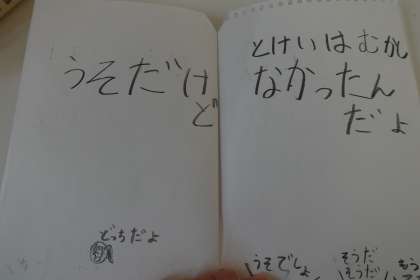 とけいはむかし
なかったん
だよ
うそでしょ
そうだ
そうだ
うそだけ
ど
どっちだよ